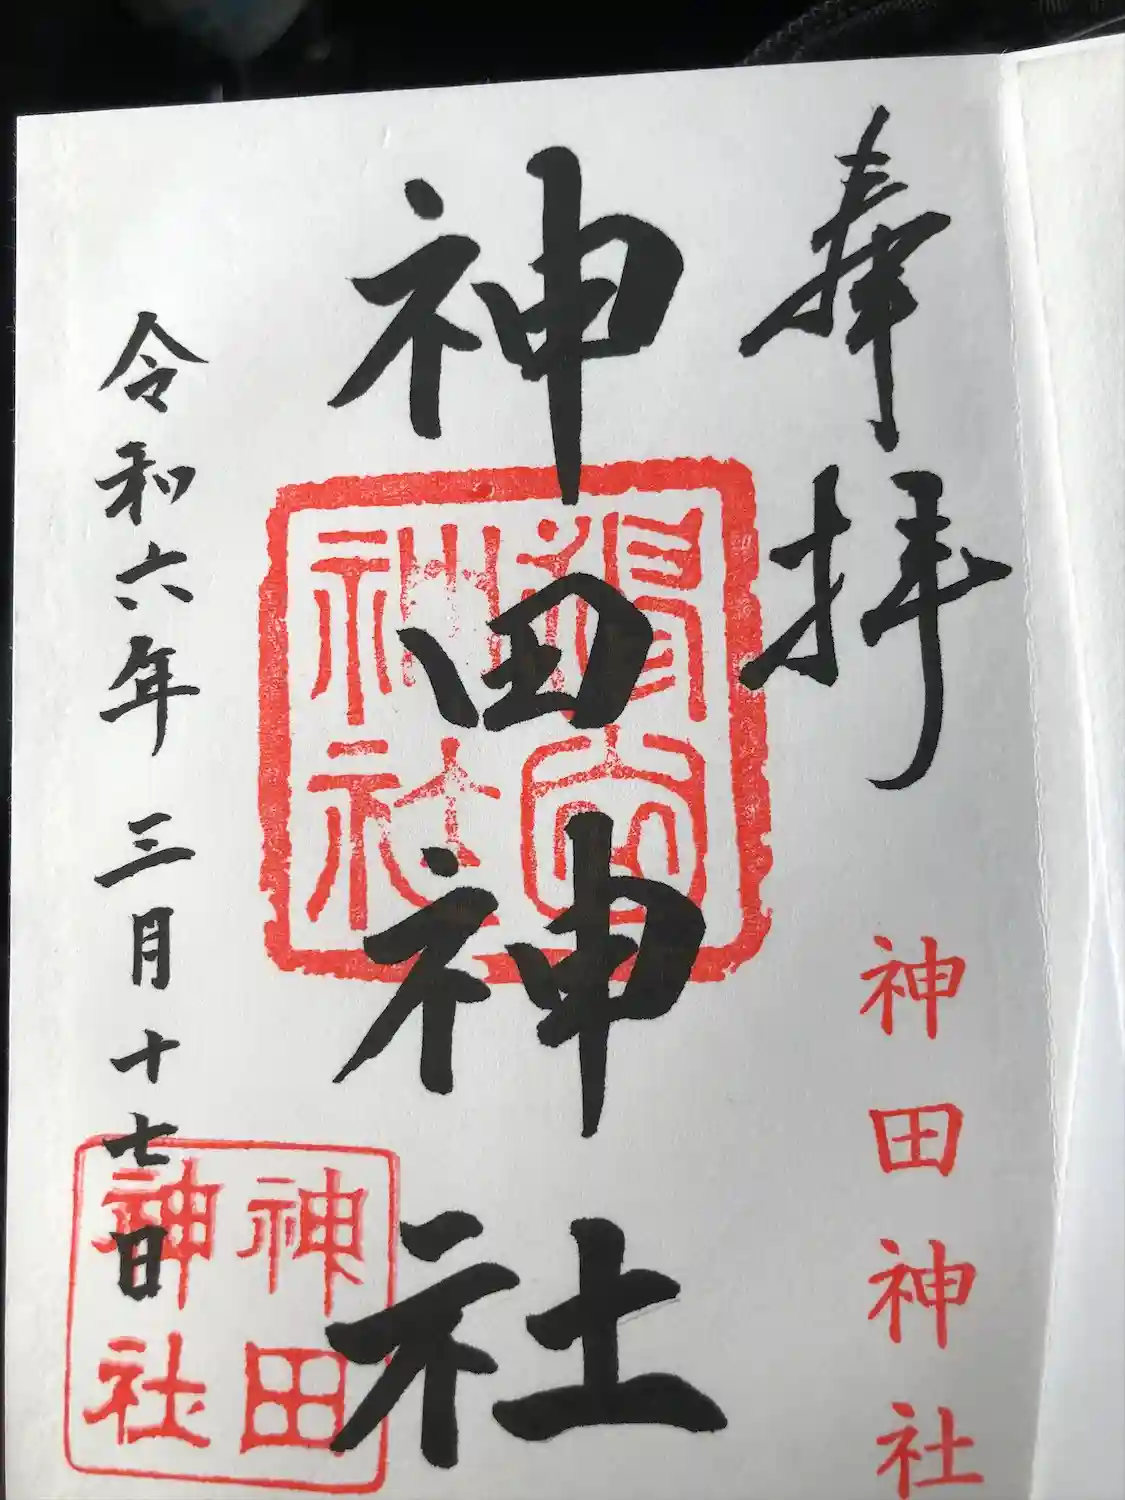 奉拝
神田神社
神田神社
神社
神田
神社
令和六年三月十七日